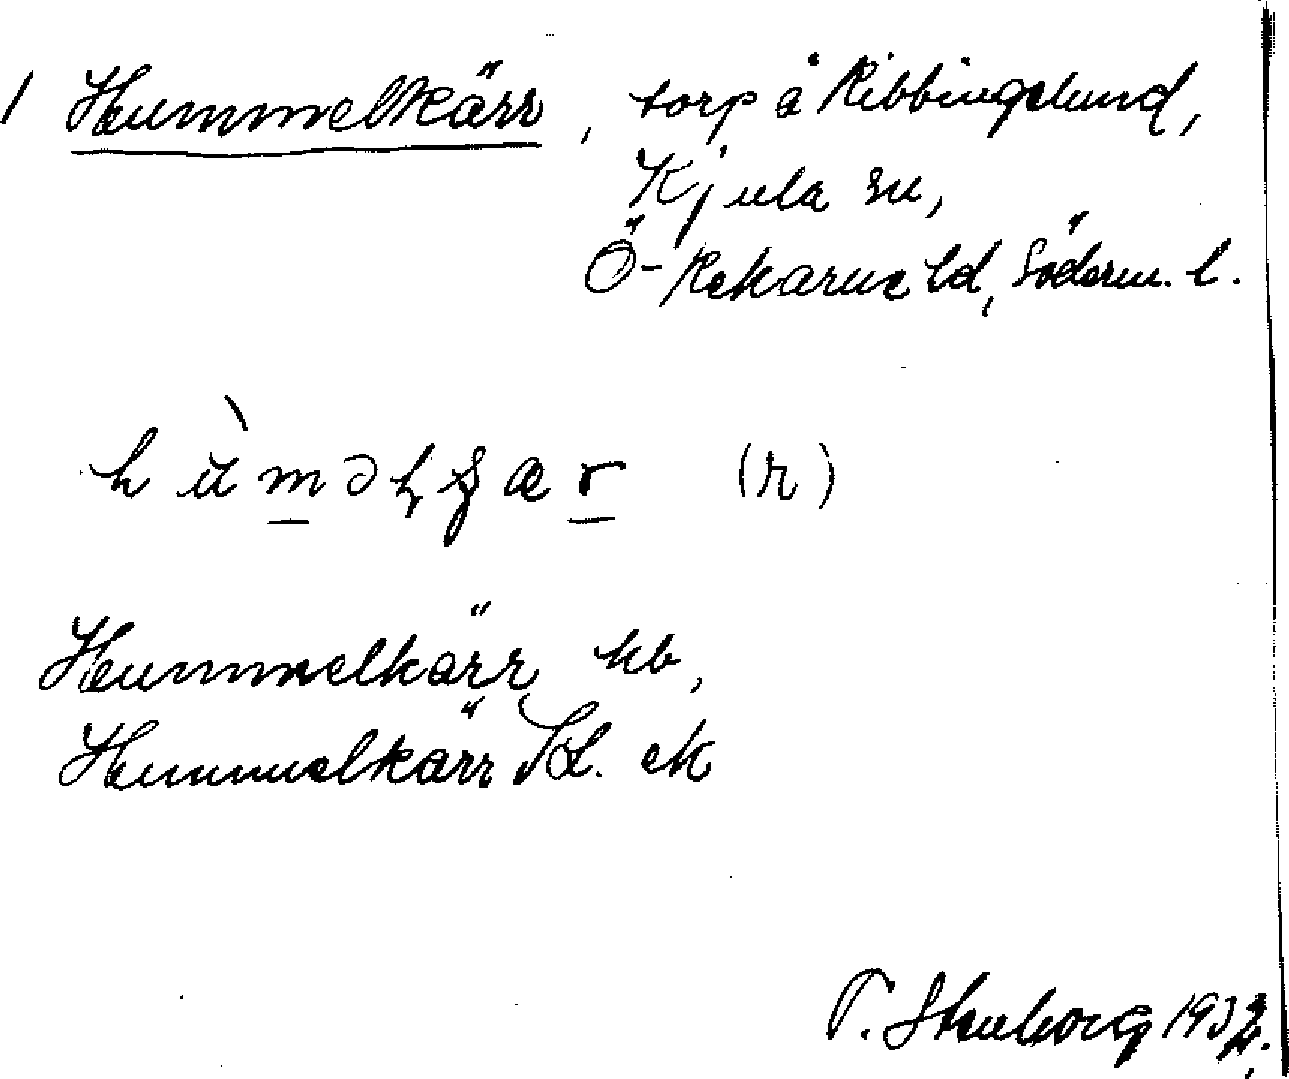 / Hummelkärr, torp å Ribbingelund,
Kjula sn,
Ö-Rekarne hd, Söderm. l.
hùməlçær (r)
Hummelkärr kb,
Hummelkärr Jb. ek
T. Stenborg